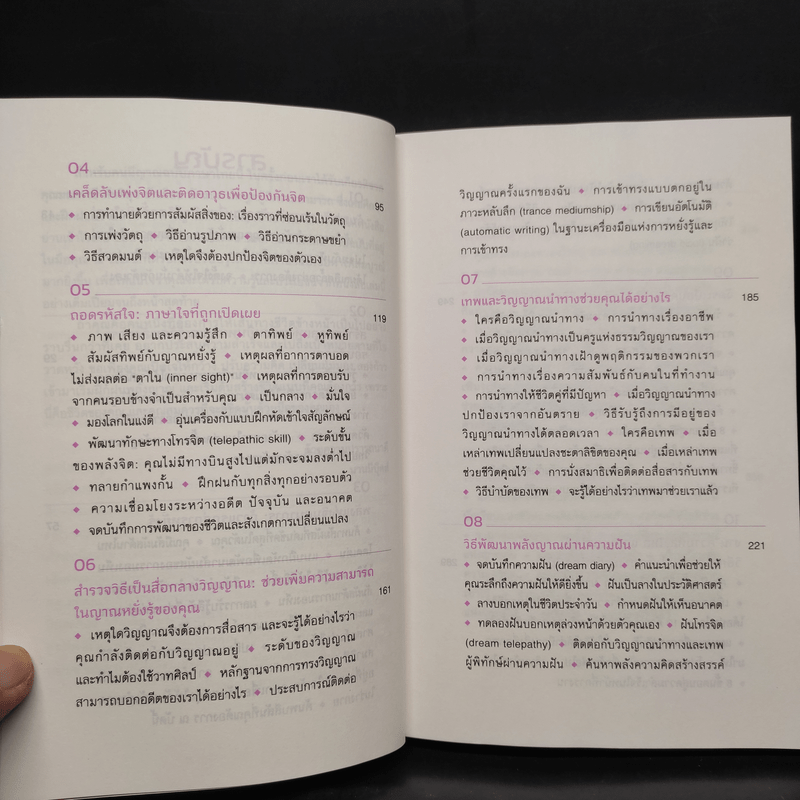 04
เคล็ดลับเพ่งจิตและติดอาวุธเพื่อป้องกันจิต 95
◆ การทำนายด้วยการสัมผัสสิ่งของ: เรื่องราวที่ซ่อนเร้นในวัตถุ
◆ การเพ่งวัตถุ ◆ วิธีอ่านรูปภาพ ◆ วิธีอ่านกระดาษขยำ
◆ วิธีสวดมนต์ ◆ เหตุใดจึงต้องปกป้องจิตของตัวเอง
05
ถอดรหัสใจ: ภาษาใจที่ถูกเปิดเผย 119
◆ ภาพ เสียง และความรู้สึก ◆ ตาทิพย์ ◆ หูทิพย์
◆ สัมผัสทิพย์กับญาณหยั่งรู้ ◆ เหตุผลที่อาการตาบอด
ไม่ส่งผลต่อ "ตาใน (inner sight)" ◆ เหตุผลที่การตอบรับ
จากคนรอบข้างจำเป็นสำหรับคุณ ◆ เป็นกลาง ◆ มั่นใจ
◆ มองโลกในแง่ดี ◆ อุ่นเครื่องกับแบบฝึกหัดเข้าใจสัญลักษณ์
◆ พัฒนาทักษะทางโทรจิต (telepathic skill) ◆ ระดับชั้น
ของพลังจิต: คุณไม่มีทางบินสูงไปแต่มักจะจมลงต่ำไป
◆ ทลายกำแพงกั้น ◆ ฝึกฝนกับทุกสิ่งทุกอย่างรอบตัว
◆ ความเชื่อมโยงระหว่างอดีต ปัจจุบัน และอนาคต
◆ จดบันทึกการพัฒนาของชีวิตและสังเกตการเปลี่ยนแปลง
06
สำรวจวิธีเป็นสื่อกลางวิญญาณ: ช่วยเพิ่มความสามารถ
ในญาณหยั่งรู้ของคุณ 161
◆ เหตุใดวิญญาณจึงต้องการสื่อสาร และจะรู้ได้อย่างไรว่า
คุณกำลังติดต่อกับวิญญาณอยู่ ◆ ระดับของวิญญาณ
และทำไมต้องใช้วาทศิลป์ ◆ หลักฐานจากการทรงวิญญาณ
สามารถบอกอดีตของเราได้อย่างไร ◆ ประสบการณ์ติดต่อ
วิญญาณครั้งแรกของฉัน ◆ การเข้าทรงแบบตกอยู่ใน
ภาวะหลับลึก (trance mediumship) ◆ การเขียนอัตโนมัติ
(automatic writing) ในฐานะเครื่องมือแห่งการหยั่งรู้และ
การเข้าทรง
07
เทพและวิญญาณนำทางช่วยคุณได้อย่างไร 185
◆ ใครคือวิญญาณนำทาง ◆ การนำทางเรื่องอาชีพ
◆ เมื่อวิญญาณนำทางเป็นครูแห่งธรรมวิญญาณของเรา
◆ เมื่อวิญญาณนำทางเฝ้าดูพฤติกรรมของพวกเรา
◆ การนำทางเรื่องความสัมพันธ์กับคนในที่ทำงาน
◆ การนำทางให้ชีวิตคู่ที่มีปัญหา ◆ เมื่อวิญญาณนำทาง
ปกป้องเราจากอันตราย ◆ วิธีรับรู้ถึงการมีอยู่ของ
วิญญาณนำทางได้ตลอดเวลา ◆ ใครคือเทพ ◆ เมื่อ
เหล่าเทพเปลี่ยนแปลงชะตาลิขิตของคุณ ◆ เมื่อเหล่าเทพ
ช่วยชีวิตคุณไว้ ◆ การนั่งสมาธิเพื่อติดต่อสื่อสารกับเทพ
◆ วิธีบำบัดของเทพ ◆ จะรู้ได้อย่างไรว่าเทพมาช่วยเราแล้ว
08
วิธีพัฒนาพลังญาณผ่านความฝัน 221
◆ จดบันทึกความฝัน (dream diary) ◆ คำแนะนำเพื่อช่วยให้
คุณระลึกถึงความฝันให้ดียิ่งขึ้น ◆ ฝันเป็นลางในประวัติศาสตร์
◆ ลางบอกเหตุในชีวิตประจำวัน ◆ กำหนดฝันให้เห็นอนาคต
◆ ทดลองฝันบอกเหตุล่วงหน้าด้วยตัวคุณเอง ◆ ฝันโทรจิต
(dream telepathy) ◆ ติดต่อกับวิญญาณนำทางและเทพ
ผู้พิทักษ์ผ่านความฝัน ◆ ค้นหาพลังความคิดสร้างสรรค์